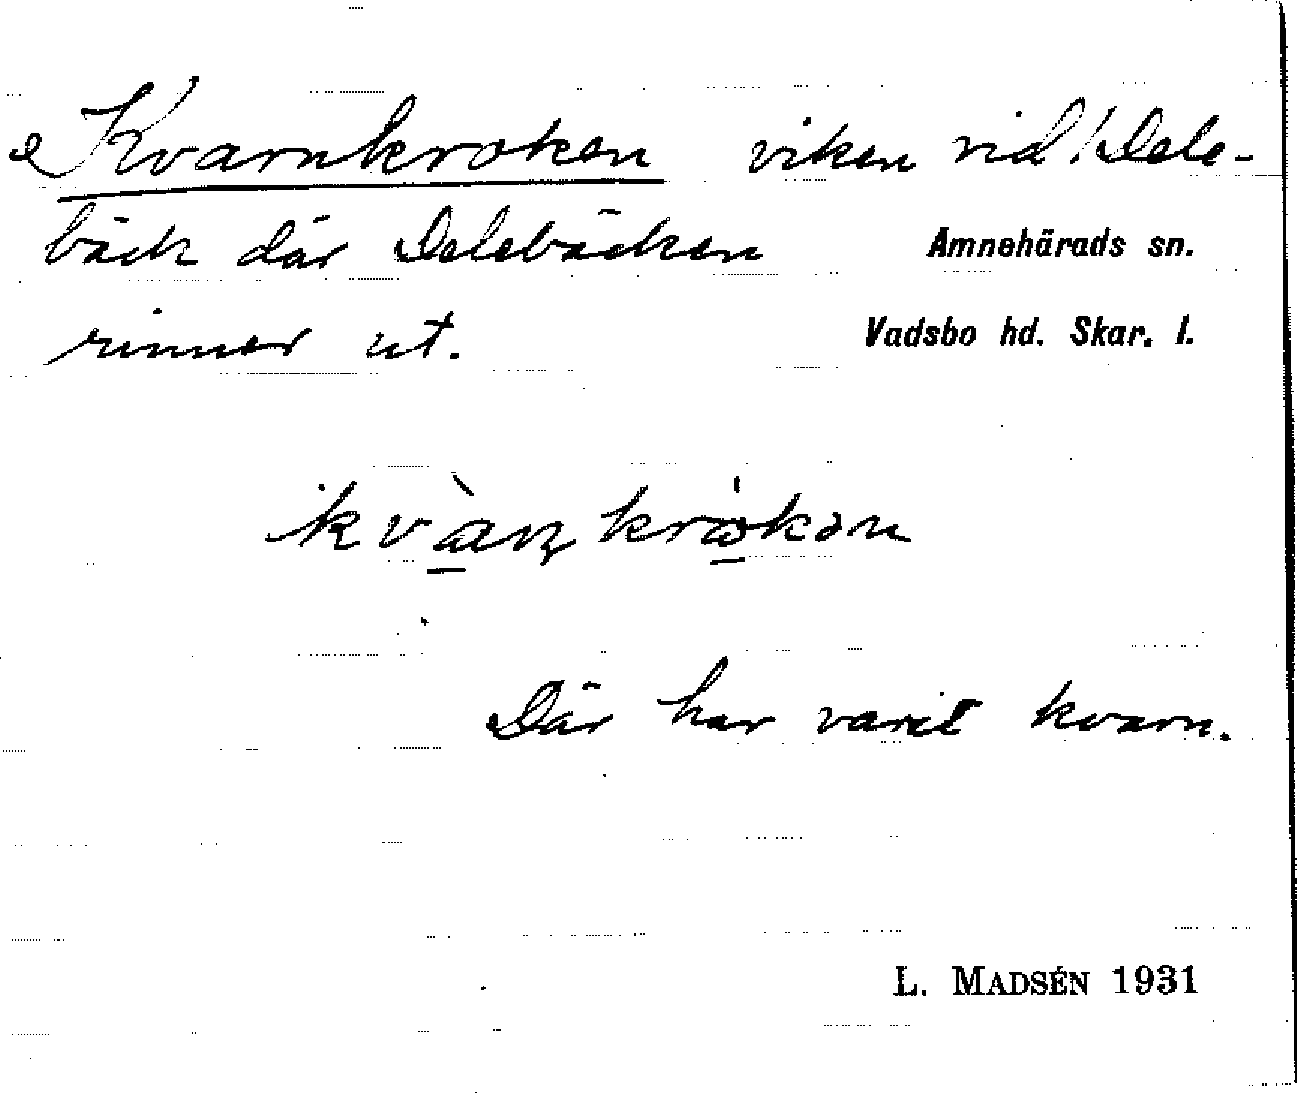 Kvarnkroken viken vid Dele-
bäck där Delebäcken
Amnehärads sn.
rinner ut.
Vadsbo hd. Skar. l.
Där har varit kvarn.
L. MADSÉN 1931